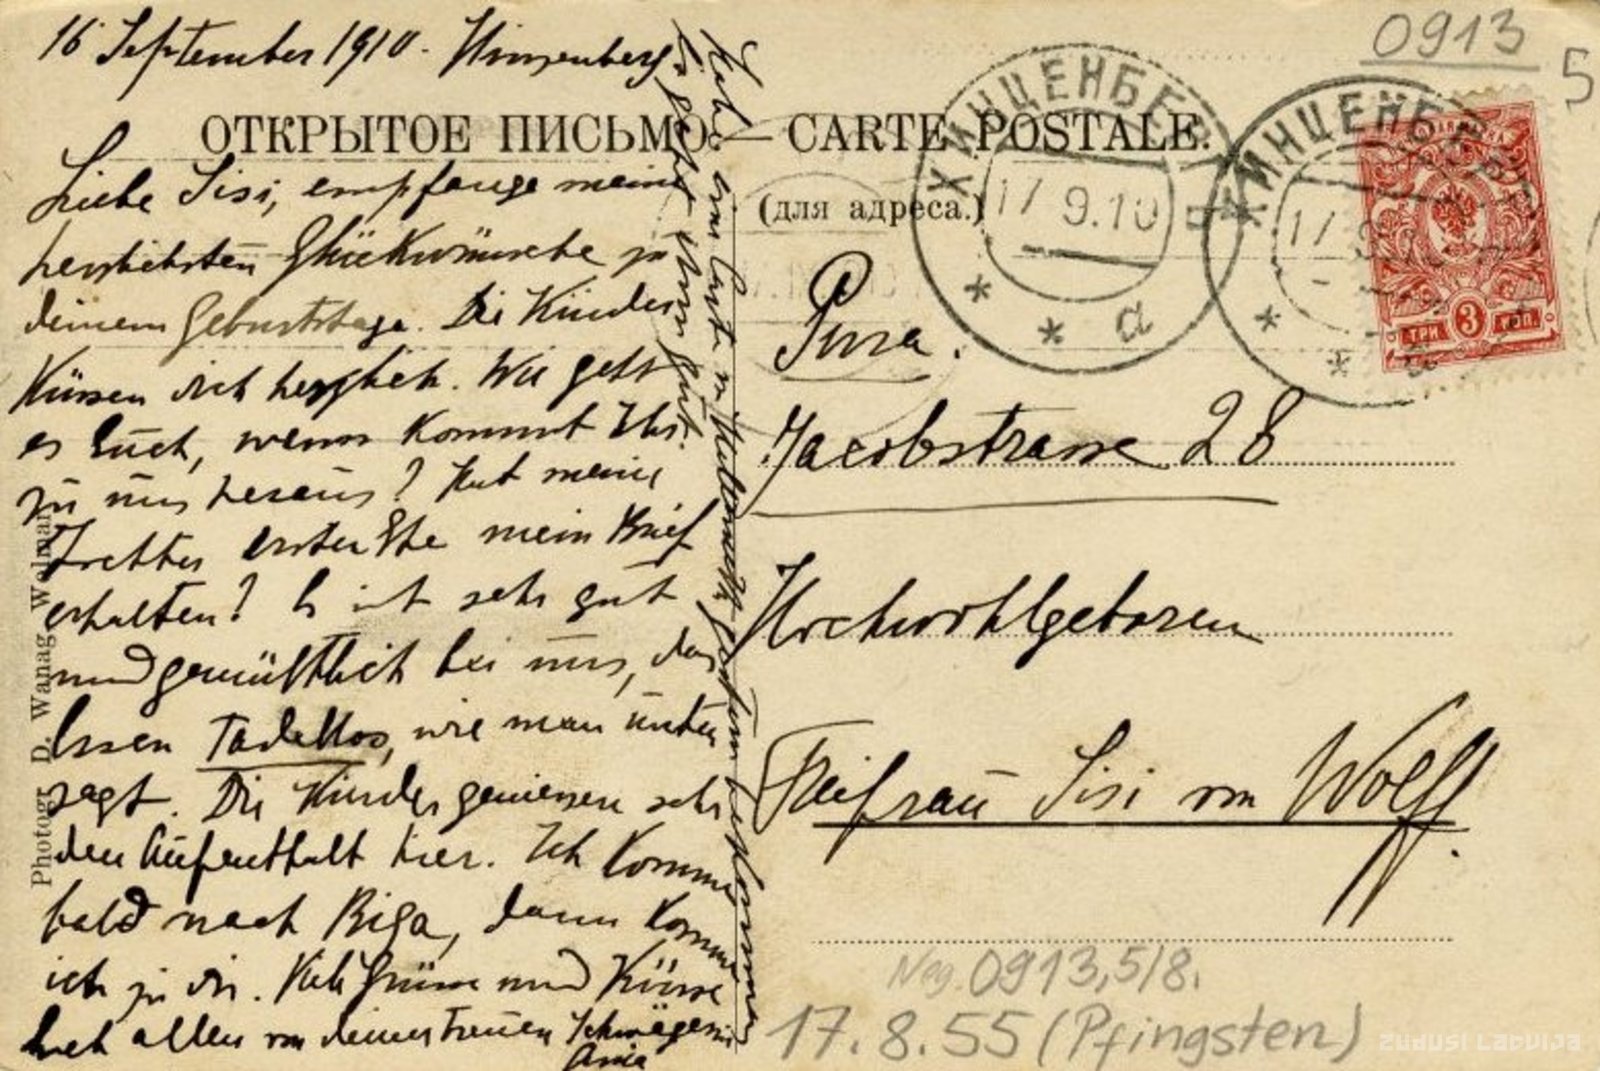 16 September 1910. Hinzenberg
ОТКРЫТОЕ ПИСЬМО — CARTE POSTALE.
(для адреса.)
Liebe Sisi, empfange meine
herzlichsten Glückwünsche zu
deinem Geburtstage. Die Kinder
Küssen dich herzlich. Wie geht
es Euch, wenn kommt Ihr
zu uns heraus? Hat meine
erste mein Brief
erhalten? Es ist sehr gut
und gemüthlich bei uns, das
Essen Tadellos, wie man
sagt. Die Kinder geniessen sehr
den Aufenthalt hier. Ich komme
bald nach Riga, dann komme
ich zu dir. Viele Grüsse und Küsse
Euch allen von deiner treuen Schwägerin
Habe eine Carte
Es geht ihm gut.
Photogr. D. Wanag Wolmar
ХИНЦЕНБЕРГ
17 9.10
* * а
ХИНЦЕНБЕРГ
17
* *
ТРИ 3 КОП.
0913
5
Jacobstrasse 28
Hochwohlgeboren
Freifrau Sisi von Wolff.
Neg. 0913,5/8.
17.8.55 (Pfingsten)
ZUDUSI LATVIJA